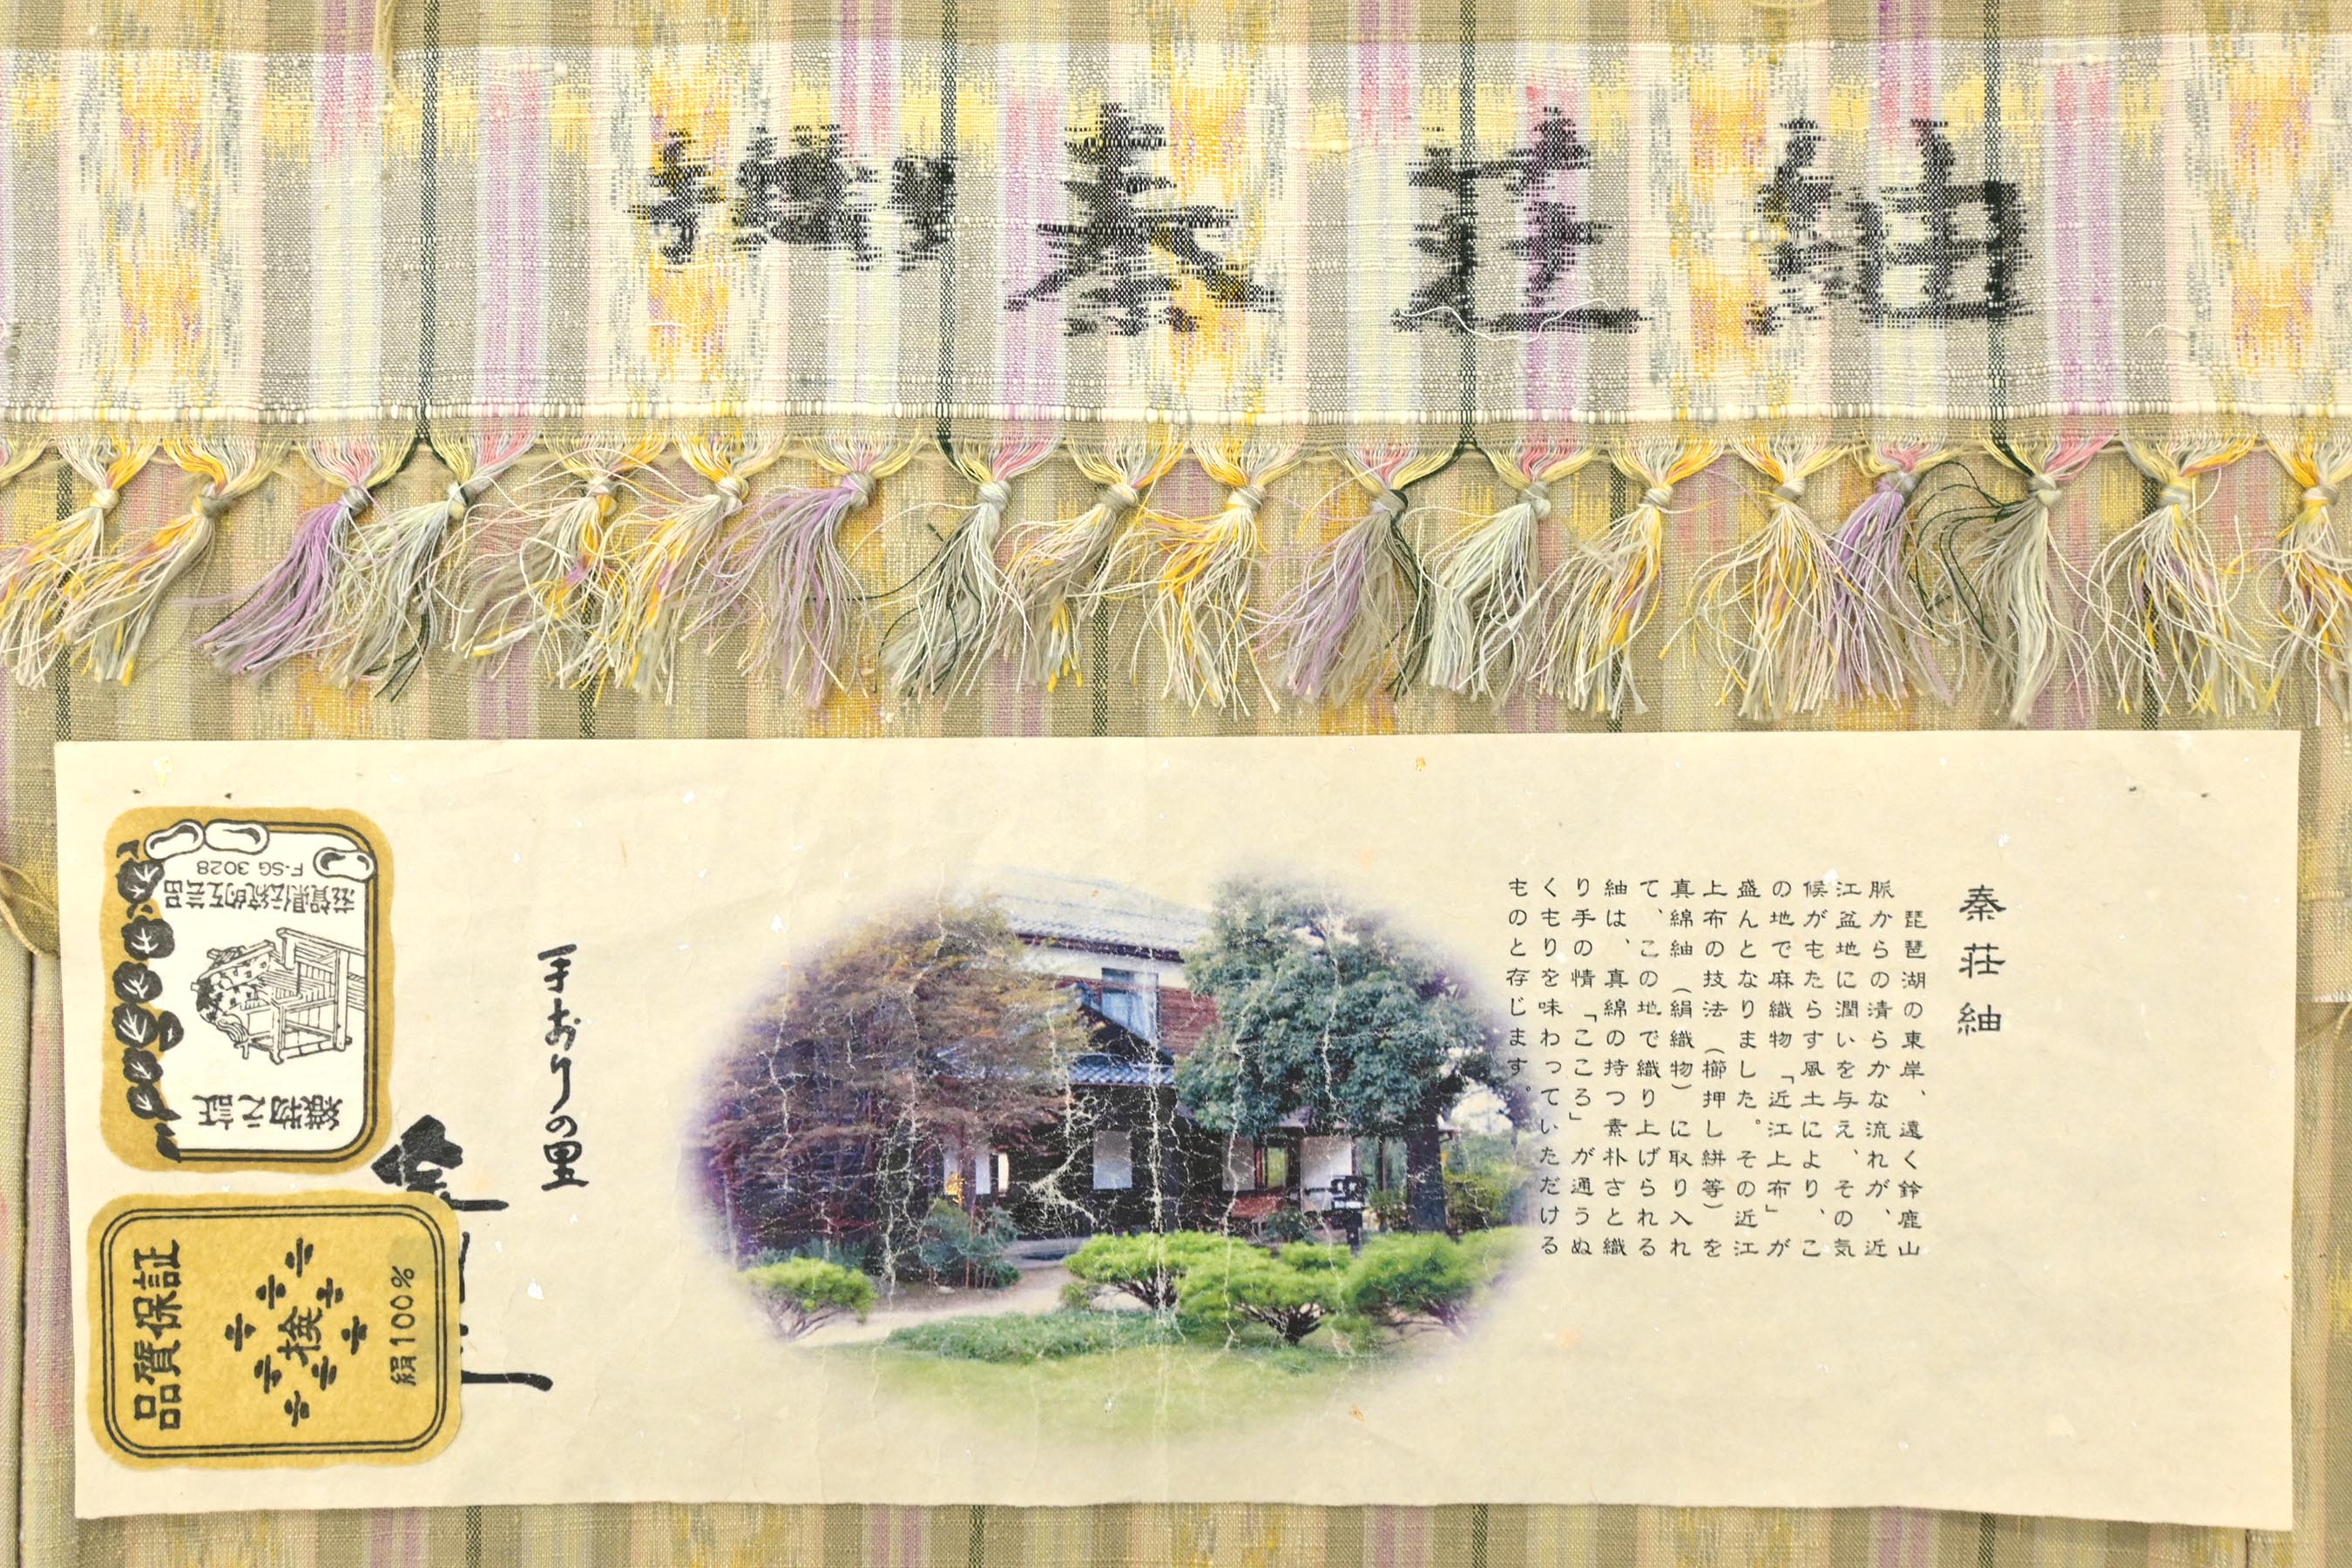 秦荘紬
秦荘紬
琵琶湖の東岸、遠く鈴鹿山
脈からの清らかな流れが、近
江盆地に潤いを与え、その気
候がもたらす風土により、こ
の地で麻織物「近江上布」が
盛んとなりました。その近江
上布の技法（櫛押し絣等）を
真綿紬（絹織物）に取り入れ
て、この地で織り上げられる
紬は、真綿の持つ素朴さと織
り手の情「こころ」が通うぬ
くもりを味わっていただける
ものと存じます。
手おりの里
織物之証
滋賀県伝統的工芸品
F-SG 3028
品質保証
検
絹100%